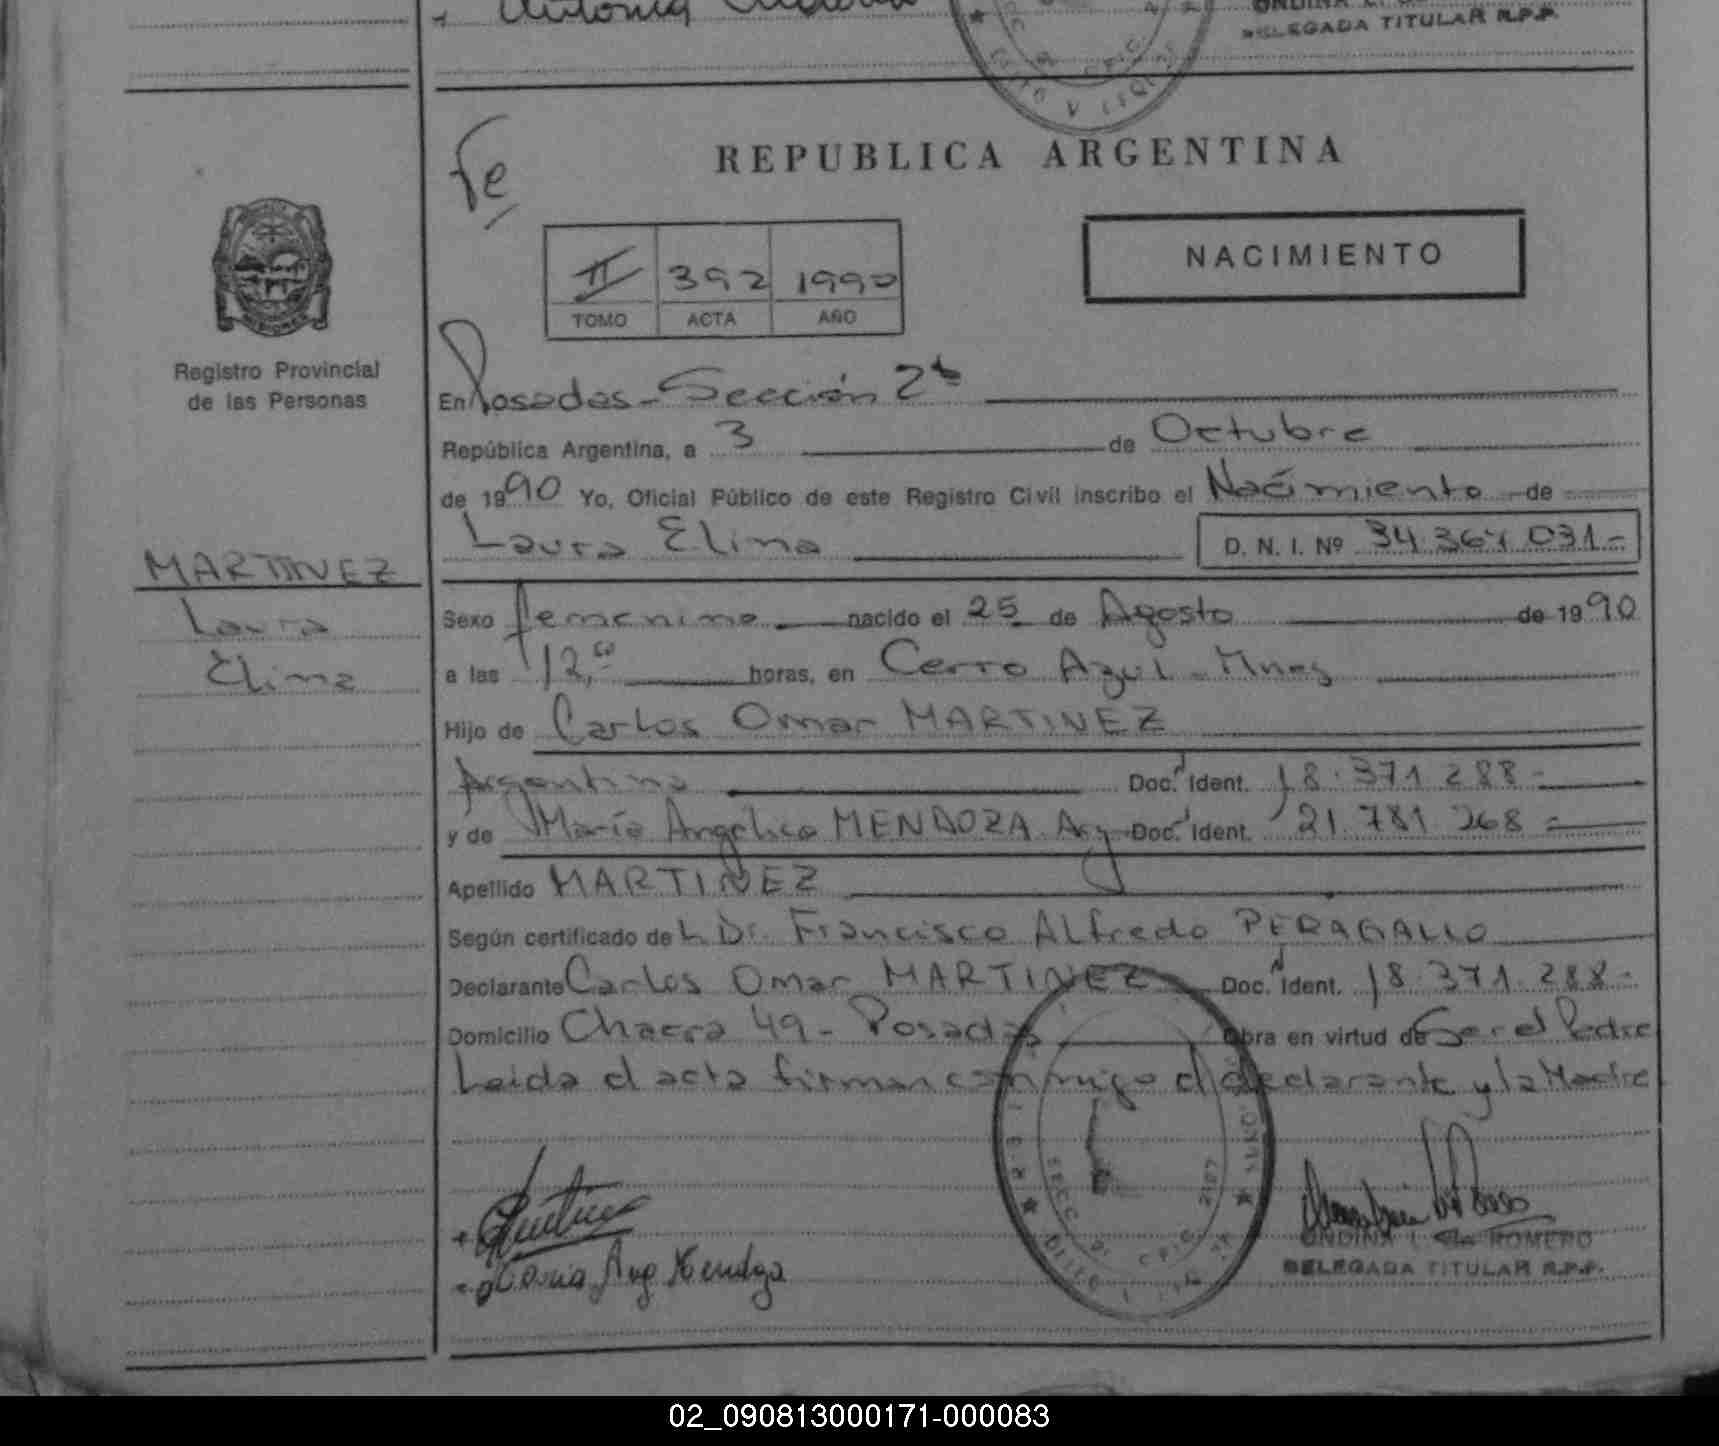 Antonia
DELEGADA TITULAR R.P.P.
Fe
REPUBLICA ARGENTINA
NACIMIENTO
II 392 1990
TOMO ACTA AÑO
MISIONES
Registro Provincial
de las Personas
En Posadas - Sección 2ª
República Argentina, a 3 de Octubre
de 1990 Yo, Oficial Público de este Registro Civil inscribo el Nacimiento de
Laura Elina D. N. I. Nº 34.364.031-
MARTINEZ
Laura
Elina
Sexo femenino nacido el 25 de Agosto de 1990
a las 12,ºº horas, en Cerro Azul - Mnes
Hijo de Carlos Omar MARTINEZ
Argentino Doc. Ident. 18.371.288-
y de María Angélica MENDOZA Arg Doc. Ident. 21.781.268-
Apellido MARTINEZ
Según certificado del Dr. Francisco Alfredo PERAGALLO
Declarante Carlos Omar MARTINEZ Doc. Ident. 18.371.288-
Domicilio Chacra 49 - Posadas Obra en virtud de Ser el Padre
Leida el acta firman conmigo el declarante y la Madre
Maria Ang Mendoza
ONDINA L. ROMERO
DELEGADA TITULAR R.P.P.
02_090813000171-000083